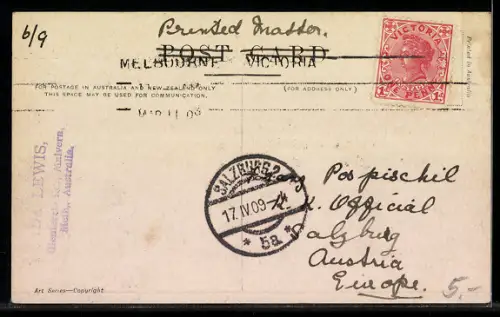 b/g
Printed Matter.
POST CARD
MELBOURNE VICTORIA
VICTORIA
ONE PENNY
Printed in Australia
FOR POSTAGE IN AUSTRALIA AND NEW ZEALAND ONLY
THIS SPACE MAY BE USED FOR COMMUNICATION.
(FOR ADDRESS ONLY)
MAR 11 09
LEWIS,
Malvern,
Melb., Australia.
SALZBURG 2
17.IV.09
* 5a *
Pospischil
K. K. Official
Salzburg
Austria
Europe.
5.-
Art Series—Copyright.